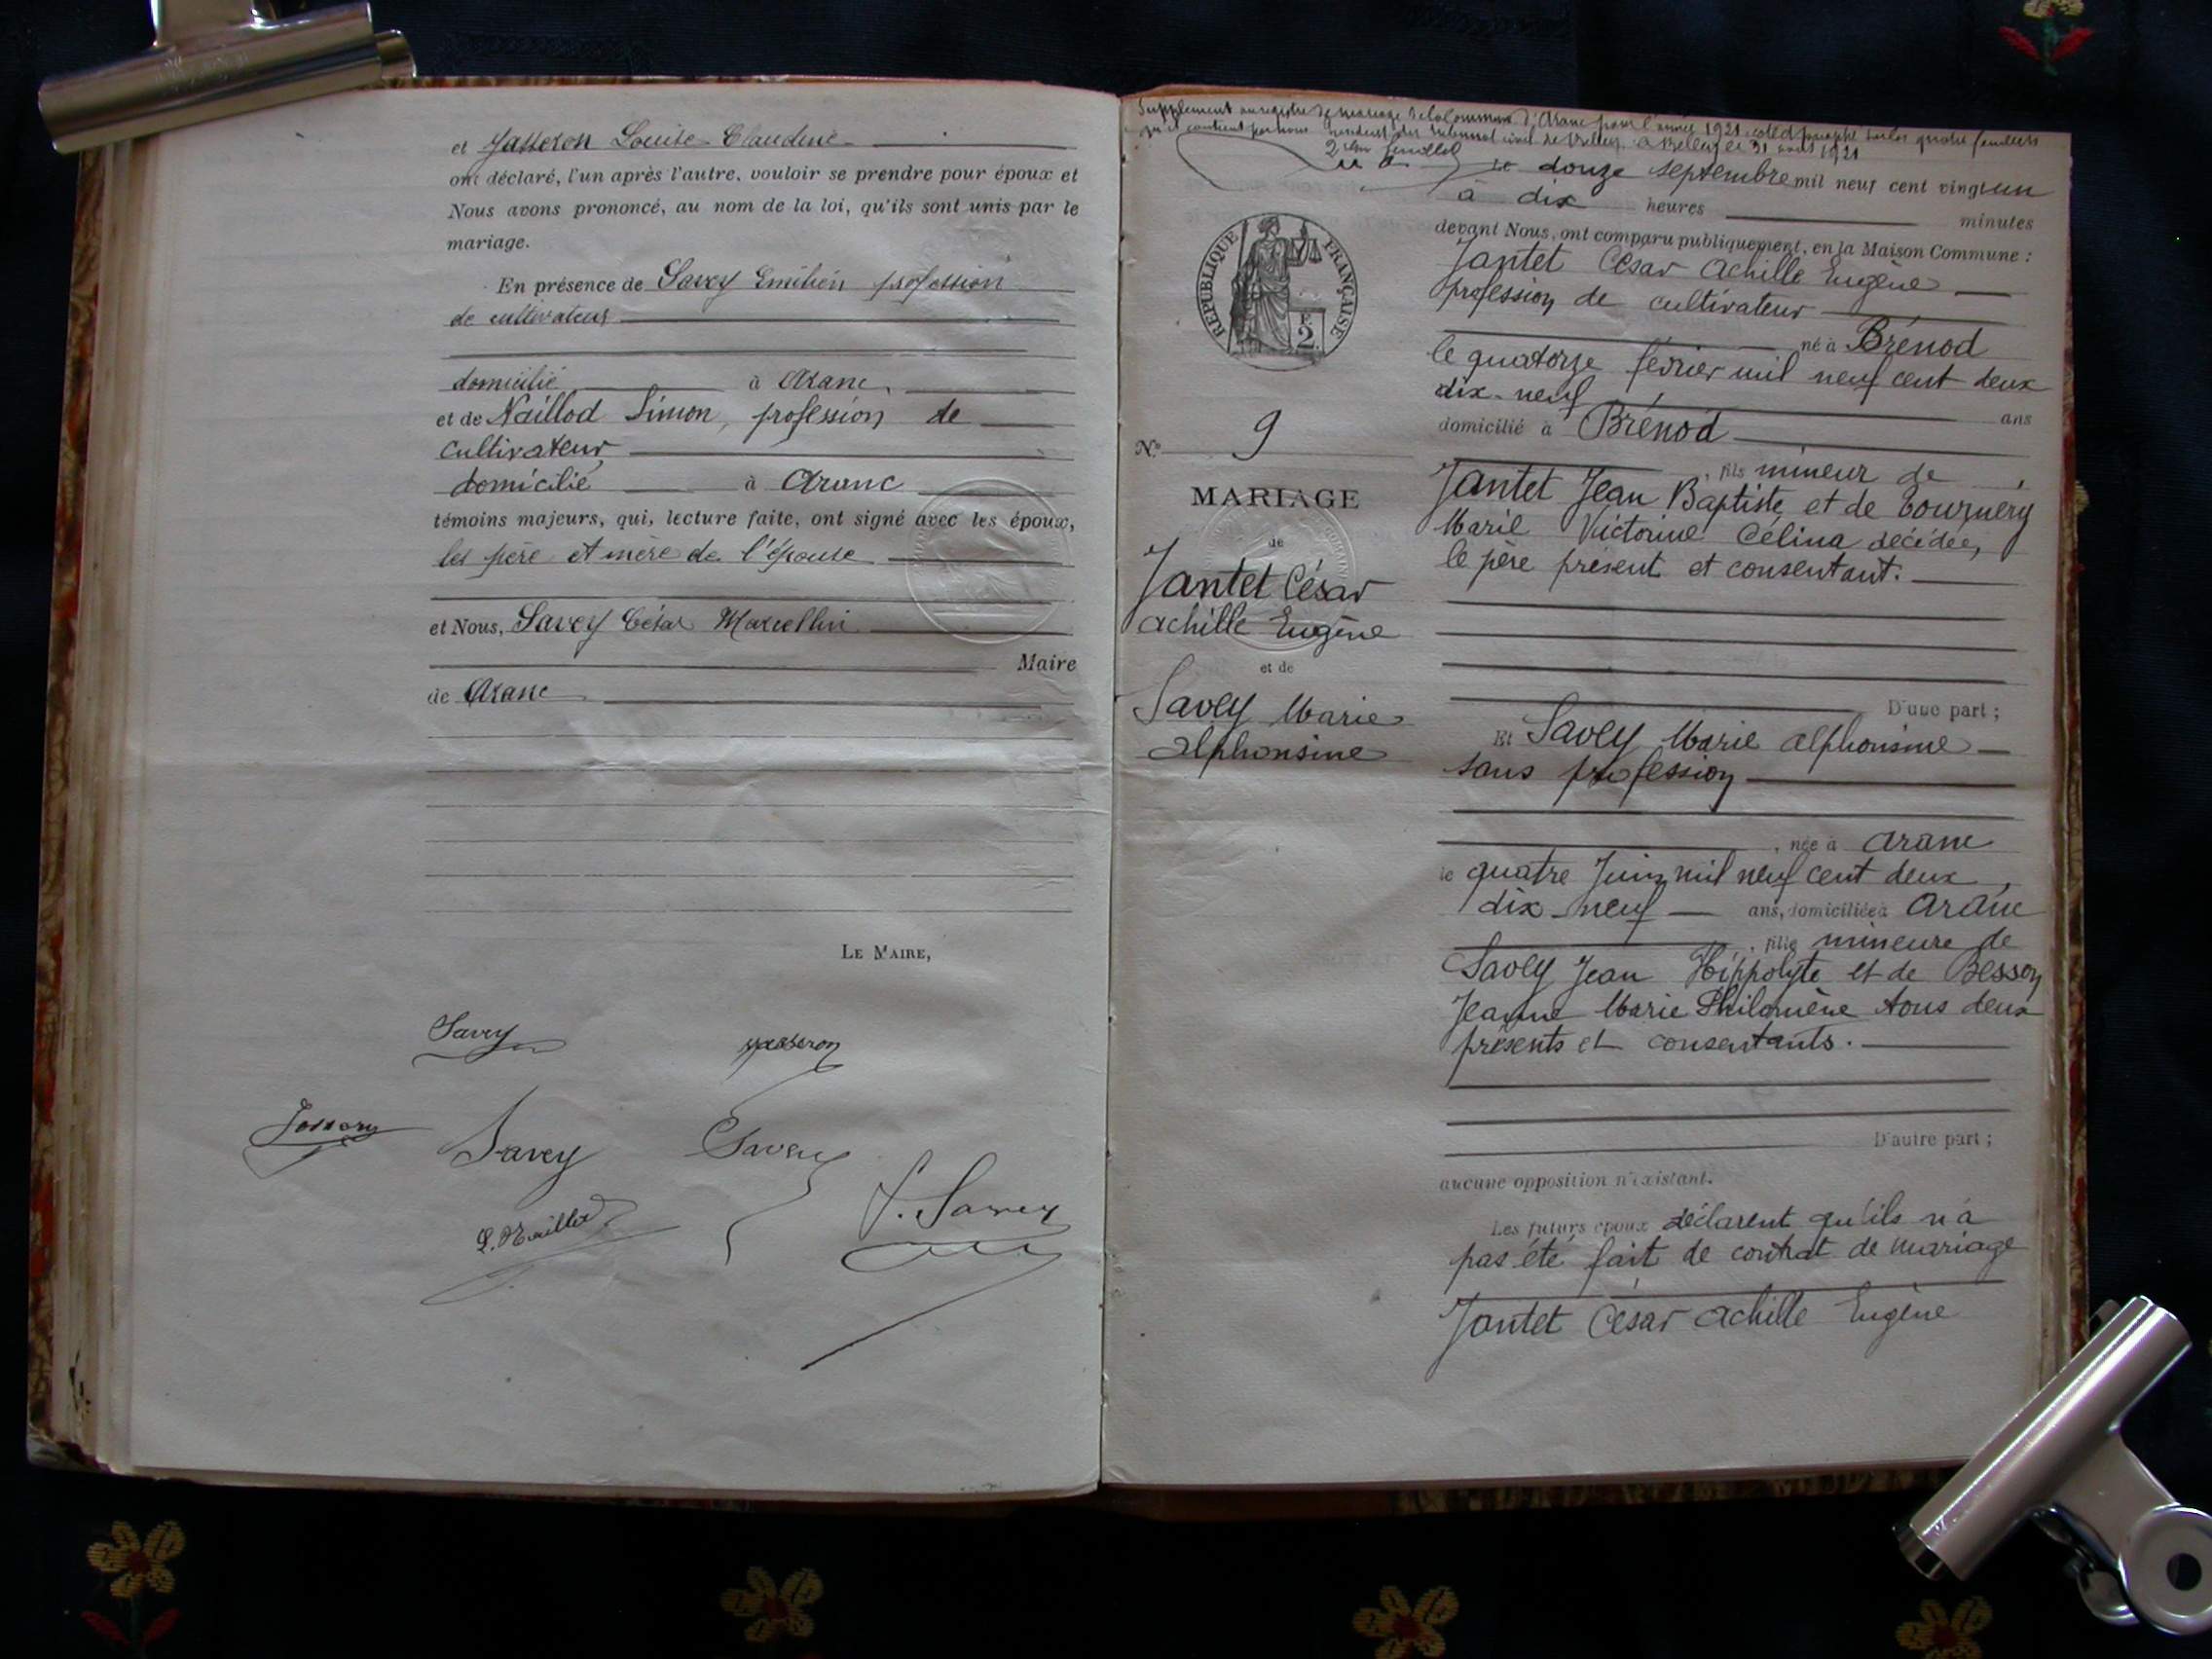 et Jasseron Louise Claudine
ont déclaré, l'un après l'autre, vouloir se prendre pour époux et
Nous avons prononcé, au nom de la loi, qu'ils sont unis par le
mariage.
En présence de Savey Emilien profession
de cultivateur
domicilié à Aranc,
et de Naillod Simon, profession de
cultivateur
domicilié à Aranc
témoins majeurs, qui, lecture faite, ont signé avec les époux,
les père et mère de l'épouse
et Nous, Savey César Marcellin
Maire
de Aranc
LE MAIRE,
Savey
Jasseron
Savey
Savey
S. Naillod
Savey
Supplément au registre de mariage de la commune d'Aranc pour l'année 1921, coté et paraphé sur les quatre feuillets
qu'il contient par nous Président du tribunal civil de Belley. à Belley le 31 août 1921
2em feuillet
le douze septembre mil neuf cent vingt un
à dix heures minutes
devant Nous, ont comparu publiquement, en la Maison Commune :
Jantet César Achille Eugène
profession de cultivateur
né à Brénod
le quatorze février mil neuf cent deux
dix-neuf ans
domicilié à Brénod
, fils mineur de
Jantet Jean Baptiste et de Tournéry
Marie Victorine Célina décédée,
le père présent et consentant.
D'une part ;
RÉPUBLIQUE FRANÇAISE
F. 2
N° 9
MARIAGE
de
Jantet César
Achille Eugène
et de
Savey Marie
Alphonsine
Et Savey Marie Alphonsine
sans profession
, née à Aranc
le quatre Juin mil neuf cent deux,
dix-neuf ans, domiciliée à Aranc
, fille mineure de
Savey Jean Hippolyte et de Besson
Jeanne Marie Philomène tous deux
présents et consentants.
D'autre part ;
aucune opposition n'existant.
Les futurs époux déclarent qu'ils n'a
pas été fait de contrat de mariage
Jantet César Achille Eugène